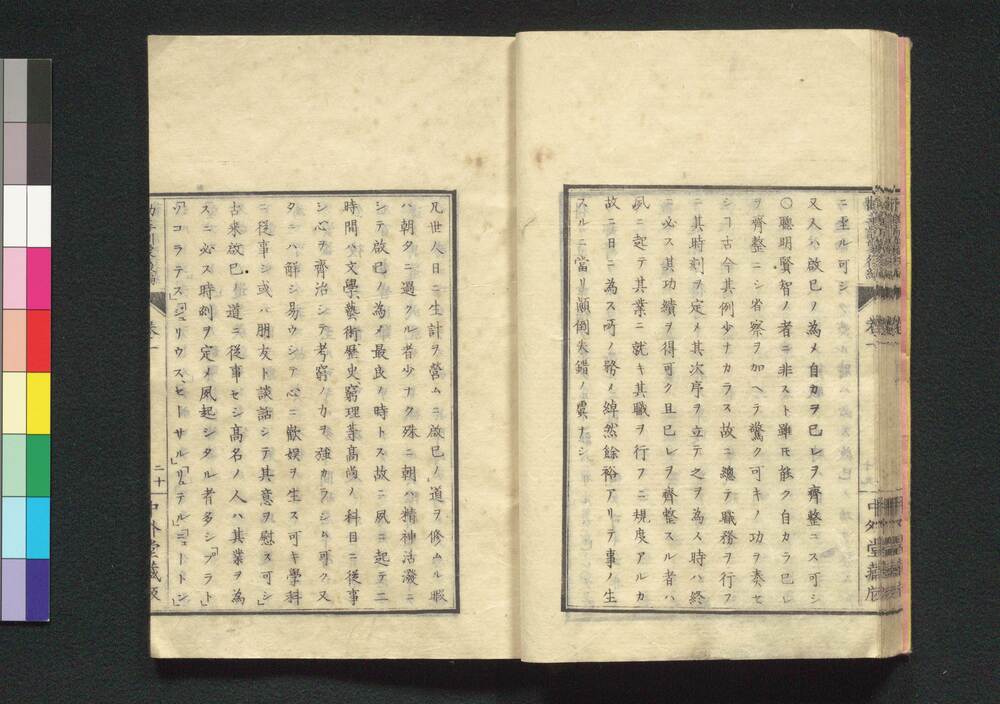 ニ至ル可シ
又人ハ啟已ノ為メ自カヲ已レヲ齊整ニス可シ
〇聰明賢智ノ者ニ非スト雖𪜈能ク自カラ已レ
ヲ齊整ニシ省察ヲ加ヘラ驚ク可キノ功ヲ奏セ
シヿ古今其例少ナカラス故ニ總テ職務ヲ行フ
ニ其時刻ヲ定メ其次序ヲ立テ之ヲ為ス時ハ終
ニ必ス其功績ヲ得可ク且已レヲ齊整スル者ハ
夙ニ起テ其業ニ就キ其職ヲ行フニ規度アルカ
故ニ日ニ為ス所ノ務メ綽然餘裕アリテ事ノ生
スルニ當リ顚倒失錯ノ患ナシ
凡世人日ニ生計ヲ營ムニ啟已ノ道ヲ修ムル暇
ハ朝夕ニ過クル者少ナク殊ニ朝ハ精神活潑ニ
シテ啟已ノ為メ最良ノ時トス故ニ夙ニ起テ二
時間ハ文學藝術歷史窮理等高尚ノ科目ニ從事
シ心ヲ齊治シテ考窮ノ力ヲ強カラシム可ク又
夕ニハ解シ易ウシテ心ニ歡娛ヲ生ス可キ學科
ニ從事シ或ハ朋友ト談話シテ其意ヲ慰ス可シ
古來啟已ノ道ニ從事セシ高名ノ人ハ其業ヲ為
スニ必ス時刻ヲ定メ夙起シタル者多シ「プラト」
「ソコラテス」「ジュリウス、ヒーサル」「リテル」「ニートトン」
卷一
二十
中外堂藏版